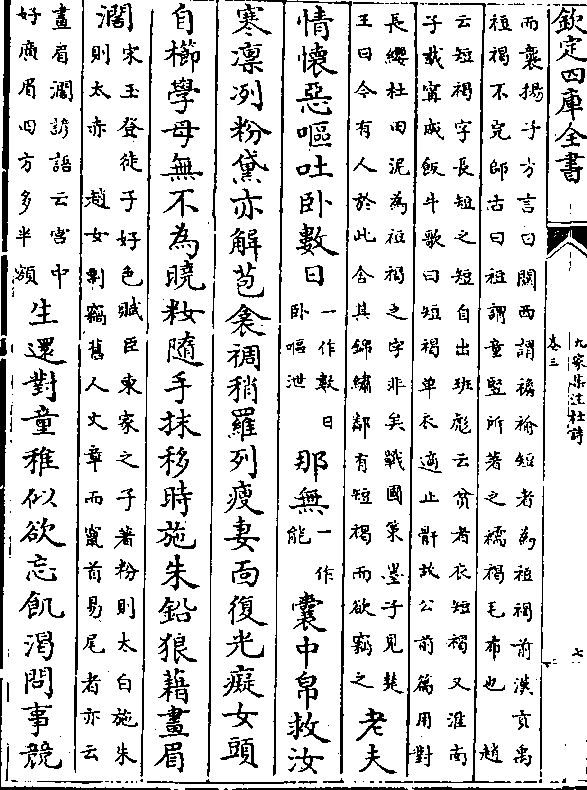 欽定四庫全書
九家集注杜詩
卷三
七
而襄揚子方言曰關西謂襜褕短者為裋褐前漢貢禹
裋褐不完師古曰裋謂童豎所著之襦褐毛布也 趙
云短褐字長短之短自出班彪云貧者衣短褐又淮南
子載甯戚飯牛歌曰短褐單衣適止骭故公前篇用對
長纓杜田泥為裋褐之字非矣戰國策墨子見楚
王曰今有人於此舍其錦繡鄰有短褐而欲竊之
老夫
情懷惡嘔吐卧數日
一作數日
卧嘔泄
那無
一作
能
囊中帛救汝
寒凛冽粉黛亦解苞衾裯稍羅列瘦妻面復光癡女頭
自櫛學母無不為曉粧隨手抹移時施朱鉛狼藉畫眉
濶
宋玉登徒子好色賦臣東家之子著粉則太白施朱
則太赤 趙女剽竊舊人文章而竄首易尾者亦云
畫眉濶諺語云宮中
好廣眉四方多半額
生還對童稚似欲忘飢渴問事競